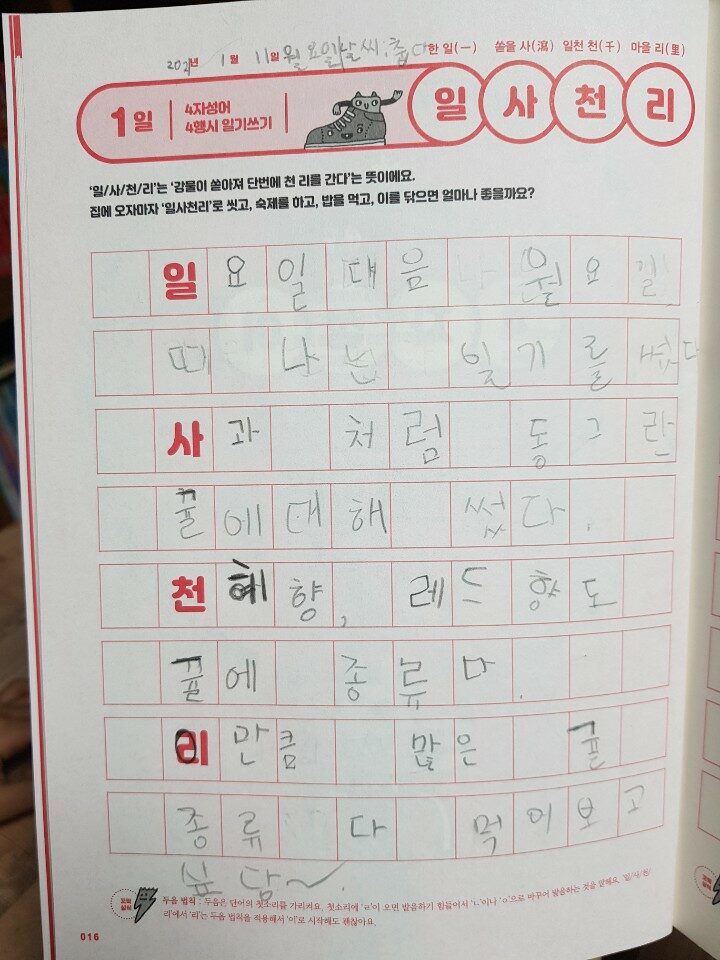 한 일(一) 쏟을 사(瀉) 일천 천(千) 마을 리(里)
년 1월 11일 월요일 날씨: 춥다
1일 4자성어 일 사 천 리
4행시 일기쓰기
‘일/사/천/리’는 ‘강물이 쏟아져 단번에 천 리를 간다’는 뜻이에요.
집에 오자마자 ‘일사천리’로 씻고, 숙제를 하고, 밥을 먹고, 이를 닦으면 얼마나 좋을까요?
일요일 대음 월요일
띠 나는 일기를 썼다
사과처럼 동그란
귤에대해 썼다.
천혜향, 레드향도
귤에 종류다.
리만큼 많은 귤
종류 다 먹어보고
싶담~.
두음 법칙 : 두음은 단어의 첫소리를 가리켜요. 첫소리에 ‘ㄹ’이 오면 발음하기 힘들어서 ‘ㄴ’이나 ‘ㅇ’으로 바꾸어 발음하는 것을 말해요. ‘일/사/천/
리’에서 ‘리’는 두음 법칙을 적용해서 ‘이’로 시작해도 괜찮아요.
016